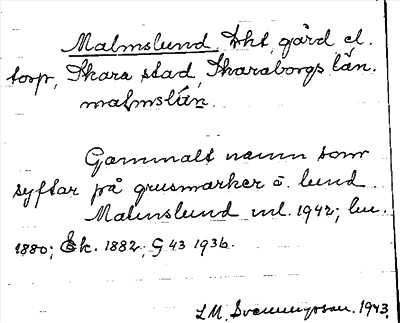 Malmslund, Trkt, gård el.
torp, Skara stad, Skaraborgs län.
malmslúṇ.
Gammalt namn som
syftar på grusmarker o. lund.
Malmslund ml. 1942;
1880; Ek. 1882; G 43 1936.
L M. Svenungsson. 1943.